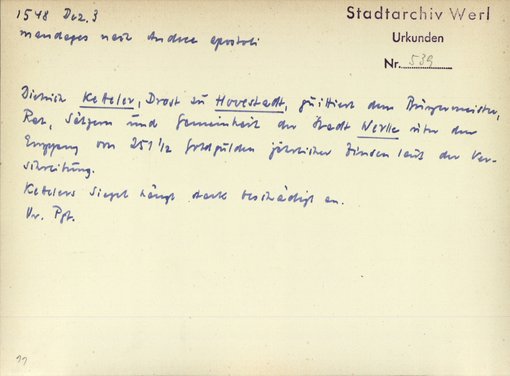 1548 Dez. 3
mandages nach Andree apostoli
Stadtarchiv Werl
Urkunden
Nr. 539
Dietrich Ketteler, Drost zu Hovestadt, quittiert dem Bürgermeister,
Rat, Sälzern und Gemeinheit der Stadt Werle über den
Empfang von 251 1/2 Goldgulden jährlicher Zinsen laut der Ver-
schreibung.
Kettelers Siegel hängt stark beschädigt an.
Or. Pgt.